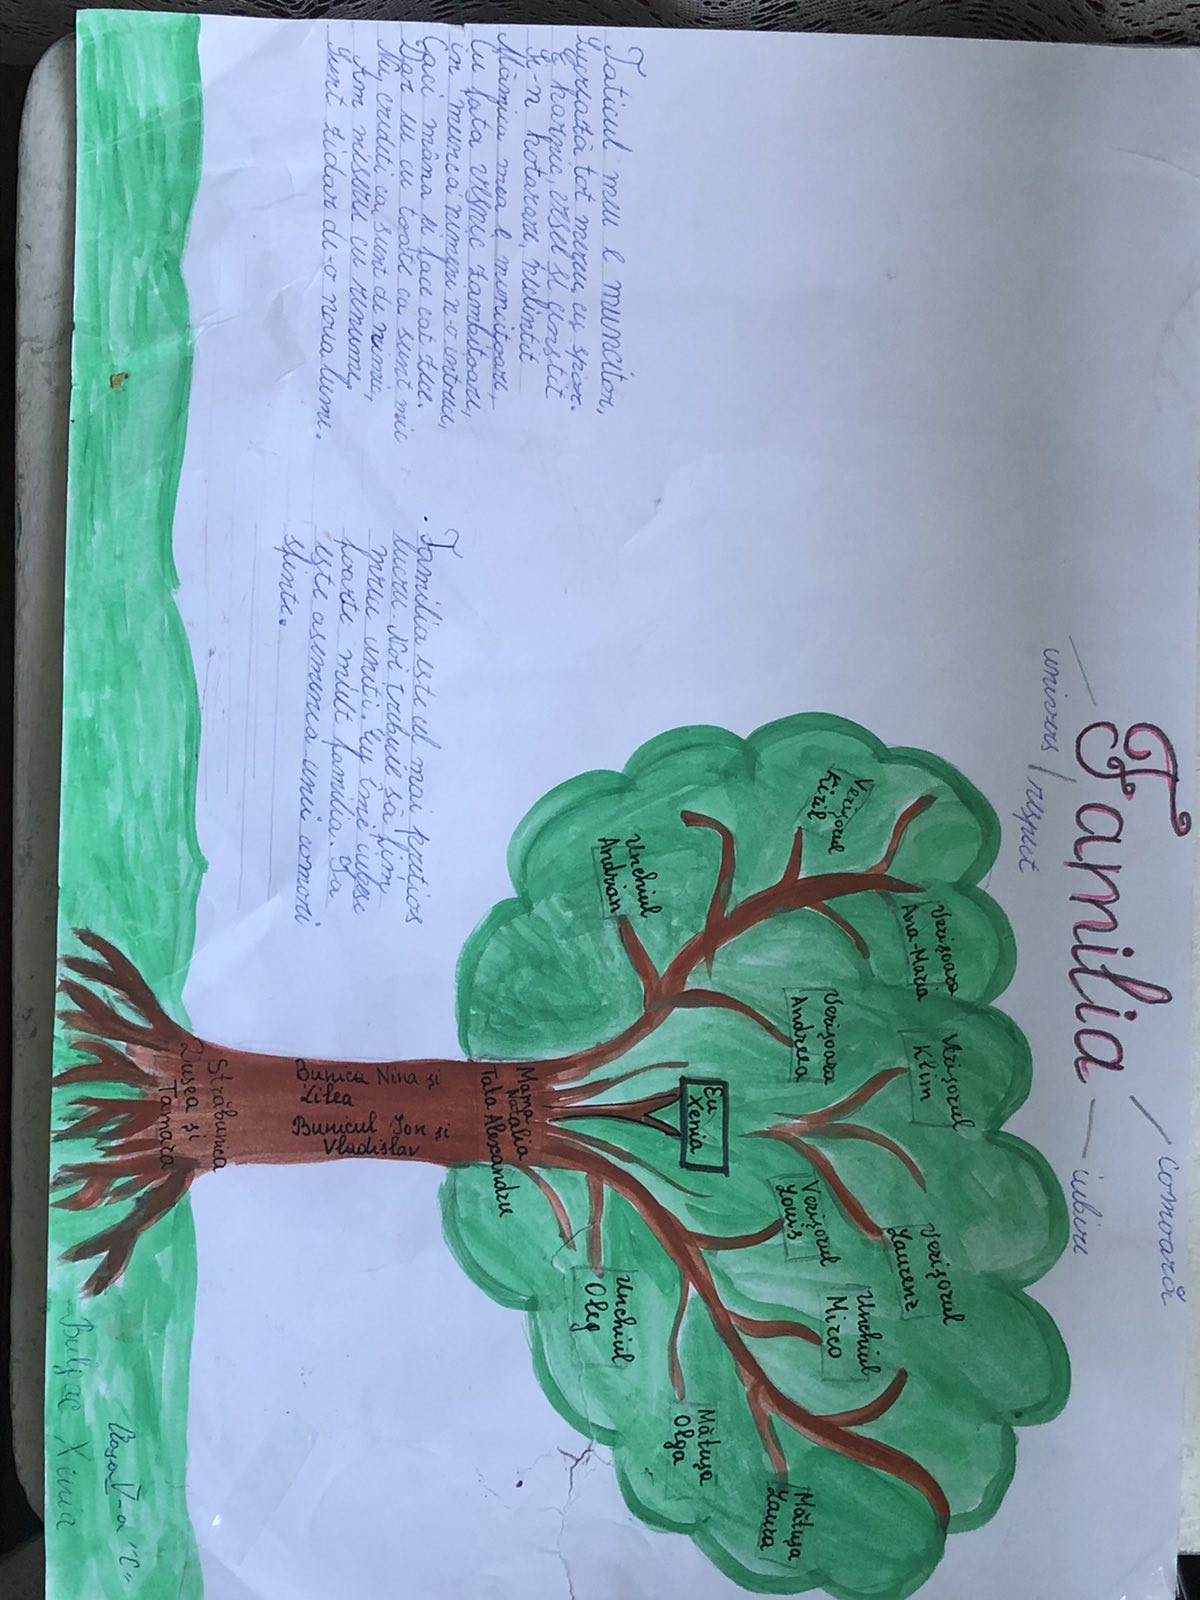 Familia
comoară
iubire
univers
respect
Verișoara
Ana-Maria
Verișorul
Klim
Verișorul
Laurenz
Verișorul
Kiril
Verișoara
Andreea
Verișorul
Louis
Unchiul
Mirco
Mătușa
Laura
Eu
Xenia
Mătușa
Olga
Unchiul
Andrian
Unchiul
Oleg
Mama
Natalia
Tata Alexandru
Bunica Nina și
Lilea
Bunicul Ion și
Vladislav
Străbunica
Dusea și
Tamara
Taticul meu e muncitor,
Lucrează tot mereu cu spor.
E harnic, vesel și cinstit
Și-n hotarare, neclintit
Mămica mea e muncitoare,
Cu fata veșnic zambitoare,
in munca nimeni n-o intrece,
Caci mâna ei face cat zece.
Dar eu cu toate ca sunt mic
Nu credeti ca sunt de nimic,
Am meserie cu renume.
Sunt zidar de-o noua lume.
Familia este cel mai prețios
lucru. Noi trebuie să fim
mreu uniți. Eu îmi iubesc
foarte mult familia. Ea
este asemenea unei comori
sfinte.
Clasa V-a "C"
Bulgac Xenia